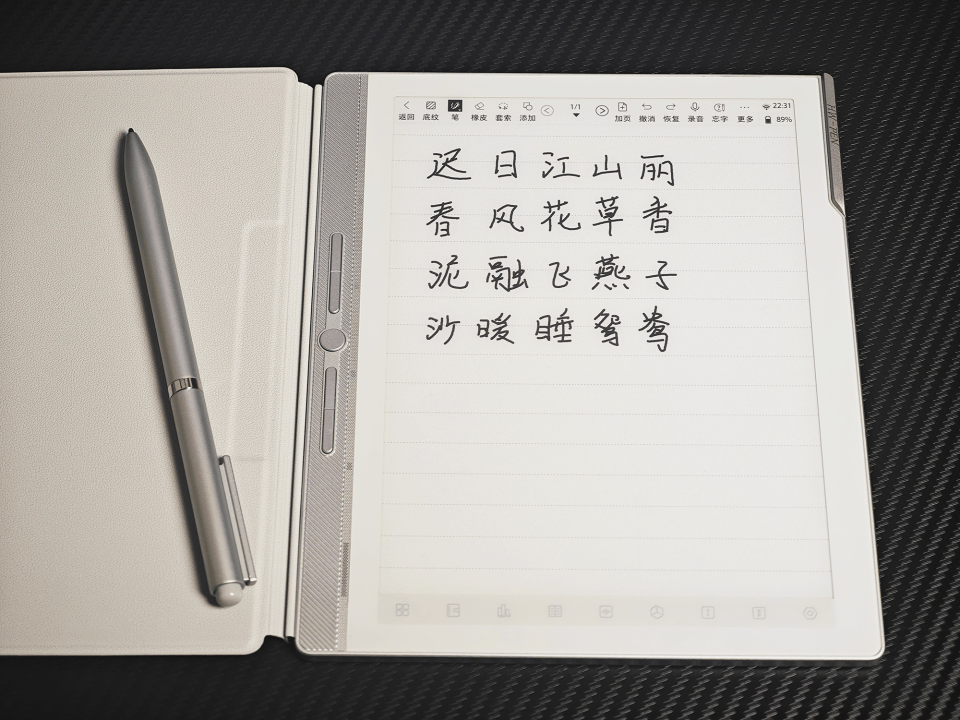 返回 底纹 笔 橡皮 套索 添加 1/1 加页 撤消 恢复 录音 忘字 更多 22:31 89%
迟日江山丽
春风花草香
泥融飞燕子
沙暖睡鸳鸯
HW-PEN